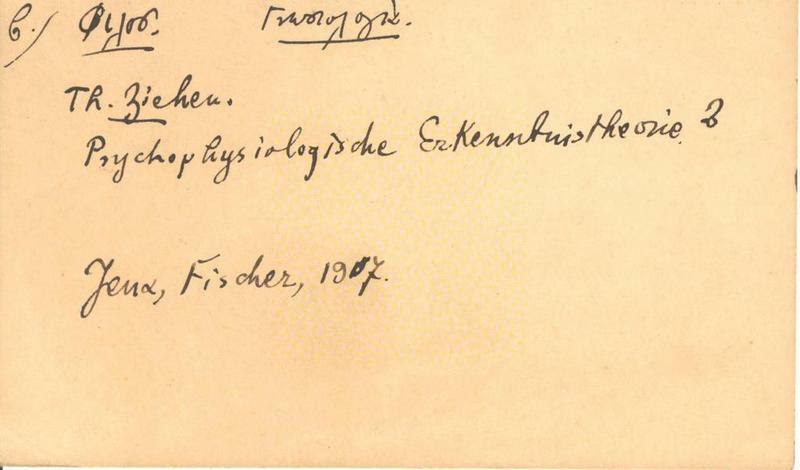 Φιλοσ. Γνωσιολογία.
Th. Ziehen.
Psychophysiologische Erkenntnistheorie. 2
Jena, Fischer, 1907.